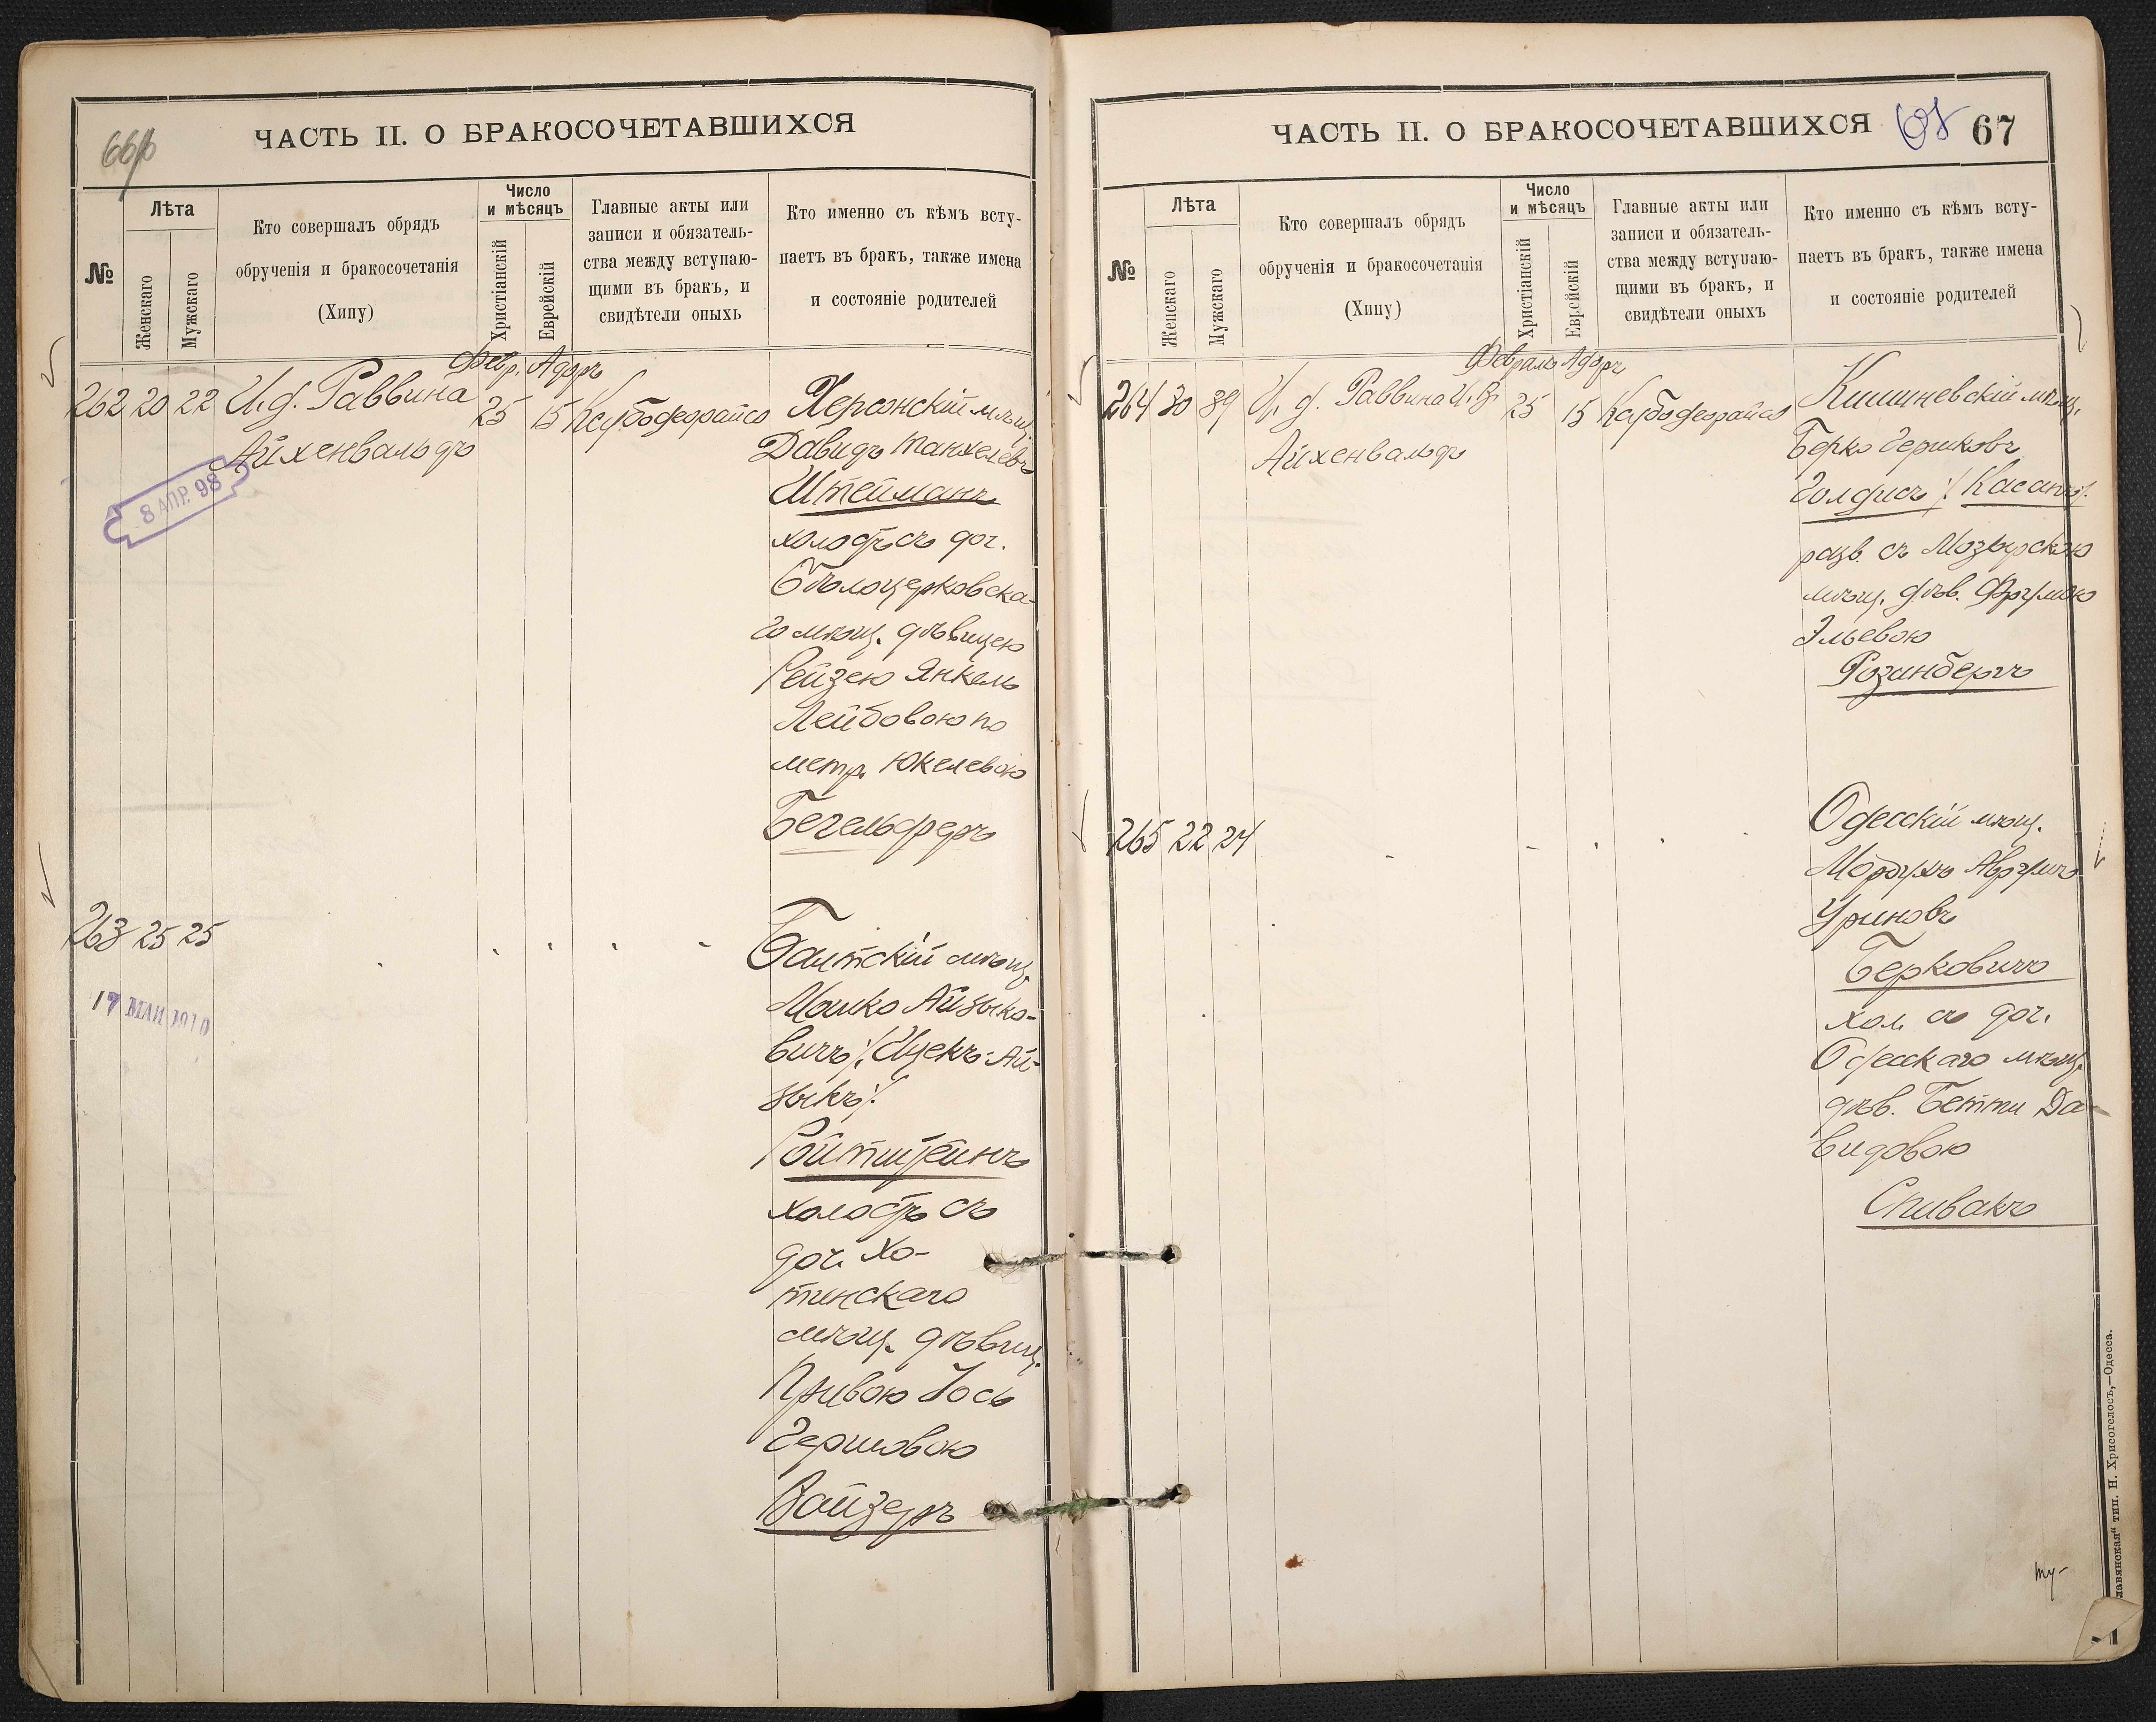 66/б
ЧАСТЬ II. О БРАКОСОЧЕТАВШИХСЯ
№
Лѣта
Женскаго
Мужскаго
Кто совершалъ обрядъ
обрученія и бракосочетанія
(Хипу)
Число
и мѣсяцъ
Христіанскій
Еврейскій
Главные акты или
записи и обязатель-
ства между вступаю-
щими въ бракъ, и
свидѣтели оныхъ
Кто именно съ кѣмъ всту-
паетъ въ бракъ, также имена
и состояніе родителей
Февр. Адаръ
262 20 22 И.д. Раввина 25 15 Ксубофедрайсо Херсонскій мѣщ.
Айхенвальдъ
8 АПР. 98
Давидъ Танхелевъ
Штейманъ
холостъ съ доч.
Бѣлоцерковска-
го мѣщ. дѣвицею
Рейзею Янкель
Лейбовою по
метр. Юкелевою
Бегельферъ
263 25 25
17 МАЙ 1910
Балтскій мѣщ.
Мошко Айзыко-
вичъ /: Ицекъ-Ай-
зыкъ :/
Ройтштейнъ
холостъ съ
доч. Хо-
тинскаго
мѣщ. дѣвиц.
Привою Іось
Гершовою
Вайзеръ
ЧАСТЬ II. О БРАКОСОЧЕТАВШИХСЯ
67
№
Лѣта
Женскаго
Мужскаго
Кто совершалъ обрядъ
обрученія и бракосочетанія
(Хипу)
Число
и мѣсяцъ
Христіанскій
Еврейскій
Главные акты или
записи и обязатель-
ства между вступаю-
щими въ бракъ, и
свидѣтели оныхъ
Кто именно съ кѣмъ всту-
паетъ въ бракъ, также имена
и состояніе родителей
Февраль Адаръ
264 30 39 И. д. Раввина 25 15 Ксубофедрайсо Кишиневскій мѣщ.
Айхенвальдъ
Берко Гершковъ
Голдисъ /: Касапъ :/
разв. съ Мозырскою
мѣщ. дѣв. Фрумою
Эльевою
Розинбергъ
265 22 24
Одесскій мѣщ.
Мордухъ Аврумъ
Уриновъ
Берковичъ
хол. съ доч.
Одесскаго мѣщ.
дѣв. Бетти Да-
видовою
Спивакъ
ту-
лавянская“ тип. Н. Хрисогелосъ,—Одесса.